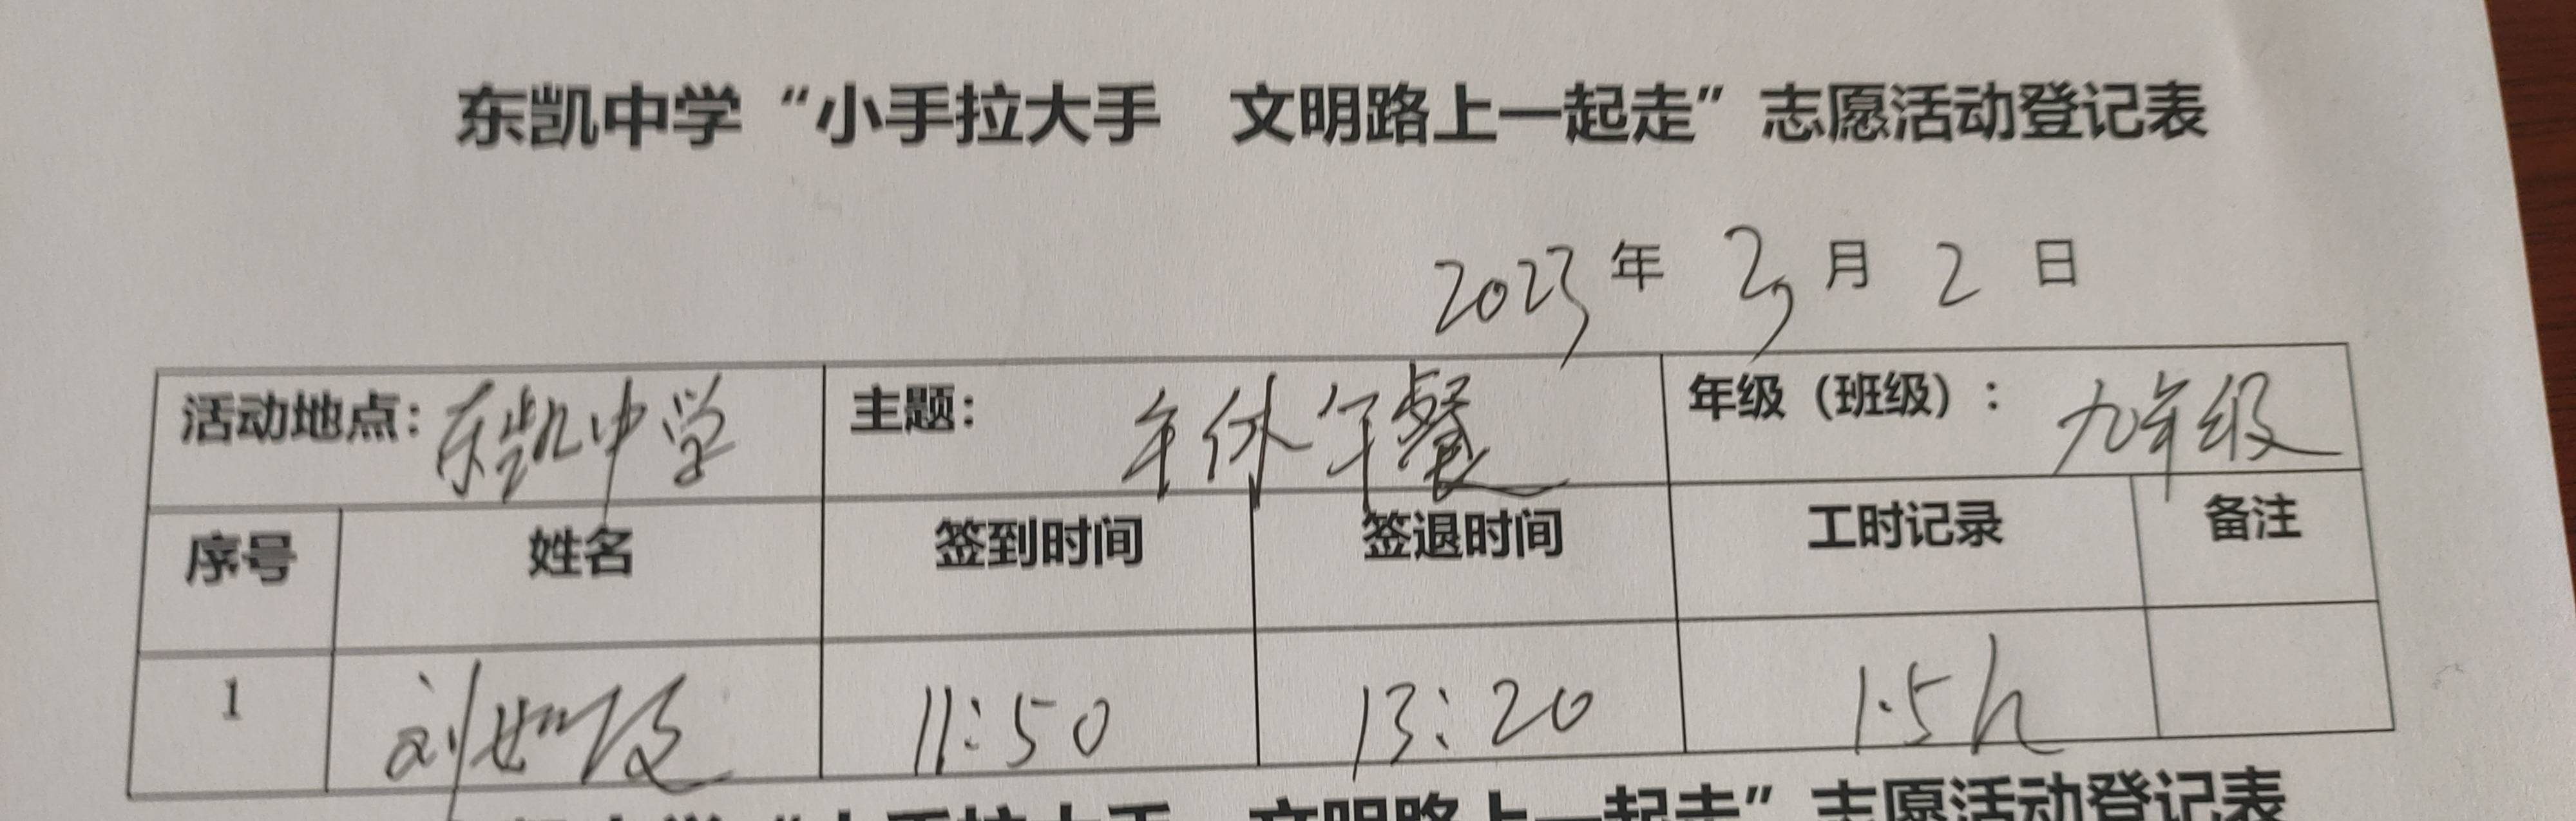 东凯中学“小手拉大手 文明路上一起走”志愿活动登记表
2023年 3月 2日
活动地点：东凯中学 主题：午休午餐 年级（班级）：九年级
序号 姓名 签到时间 签退时间 工时记录 备注
1 刘 11:50 13:20 1.5h
“小手拉大手 文明路上一起走”志愿活动登记表